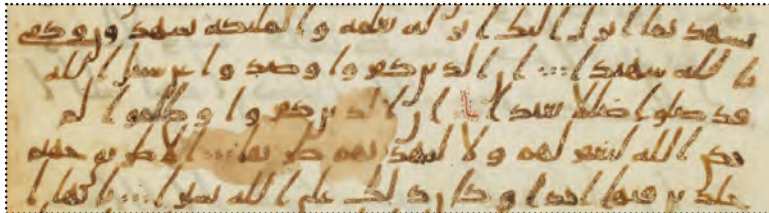 يشهد بما انزل اليك انزله بعلمه والملئكه يشهدون وكفى
بالله شهيدا ان الذين كفروا وصدوا عن سبيل الله
قد ضلوا ضللا بعيدا ان الذين كفروا وظلموا لم
يكن الله ليغفر لهم ولا ليهديهم طريقا الا طريق جهنم
خلدين فيها ابدا وكان ذلك على الله يسيرا يايها ا